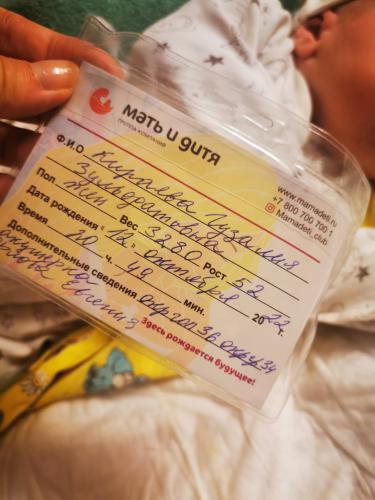 мать и дитя
ГРУППА КОМПАНИЙ
www.mamadeti.ru
+7 800 700 700 1
Mamadeti_club
Ф.И.О Кираева Гузалия
Зильдратовна
Пол жен Вес 3230 Рост 52
Дата рождения " 12 " октября 20 22 г.
Время 20 ч. 49 мин.
Дополнительные сведения окр гол 36 окр гр 34
Евгения
Здесь рождается будущее!